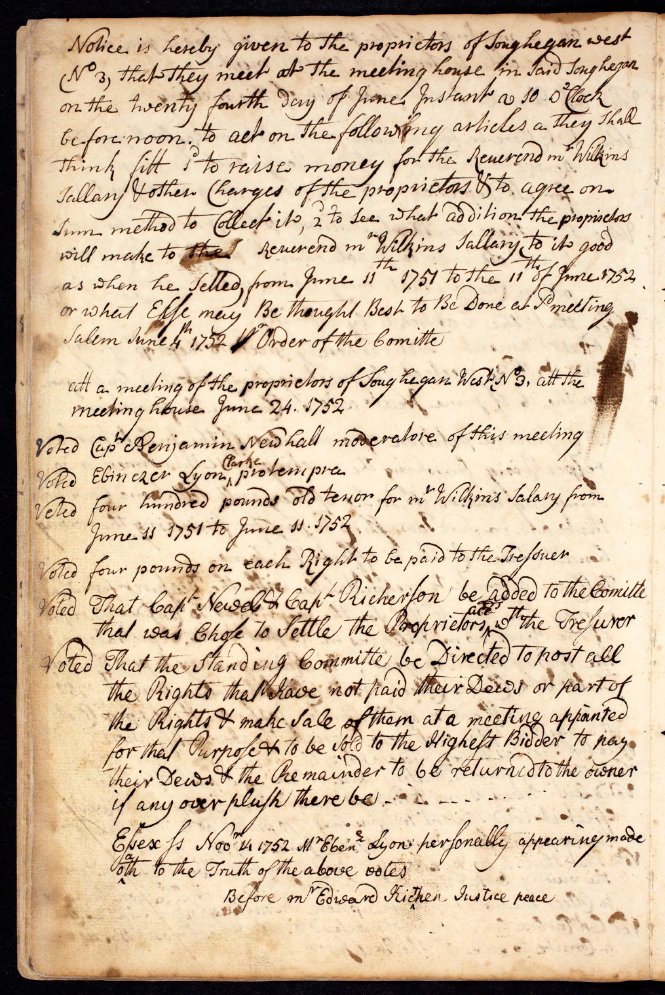 Notice is hereby given to the proprietors of Soughegan west
(No 3) that they meet at the meeting house in said Soughegan
on the twenty fourth day of June Instant a 10 o Clock
before noon. to act on the following articles a they shall
think fitt 1ly to raise money for the Reverend mr Wilkins
Sallary & other Charges of the proprietors & to agree on
sum method to Collect it, 2ly to see what addition the propriators
will make to the Reverend mr Wilkins Sallary to it good
as when he Selled, from June 11th 1751 to the 11th of June 1752
or what Else may Be thought Best to Be Done at sd meeting
Salem June 4th 1752 Pr Order of the Comitte
att a meeting of the propriators of Soughegan West No 3, att the
meeting house June 24. 1752
Voted Capt Benjamin Newhall moderatore of this meeting
Voted Ebinezer Lyon Clarke protempra
Voted four hundred pounds old tenor for mr Wilkins Salary from
June 11 1751 to June 11. 1752
Voted four pounds on each Right to be paid to the Tresuer
Voted That Capt Newel & Capt Richerson be added to the Comitte
that was Chose to Settle the Proprietors wth the Tresurer
Voted That the Standing Committe be Directed to post all
the Rights that have not paid their Dews or part of
the Rights & make Sale of them at a meeting appanted
for that Purpose & to be sold to the Highest Bidder to pay
their Dews & the Remainder to be returnd to the owner
if any over plush there be
Essex Ss Novr 14 1752 Mr Ebenr Lyon personally appearing made
oath to the Truth of the above votes
Before mr Edward Kitchen Justice peace